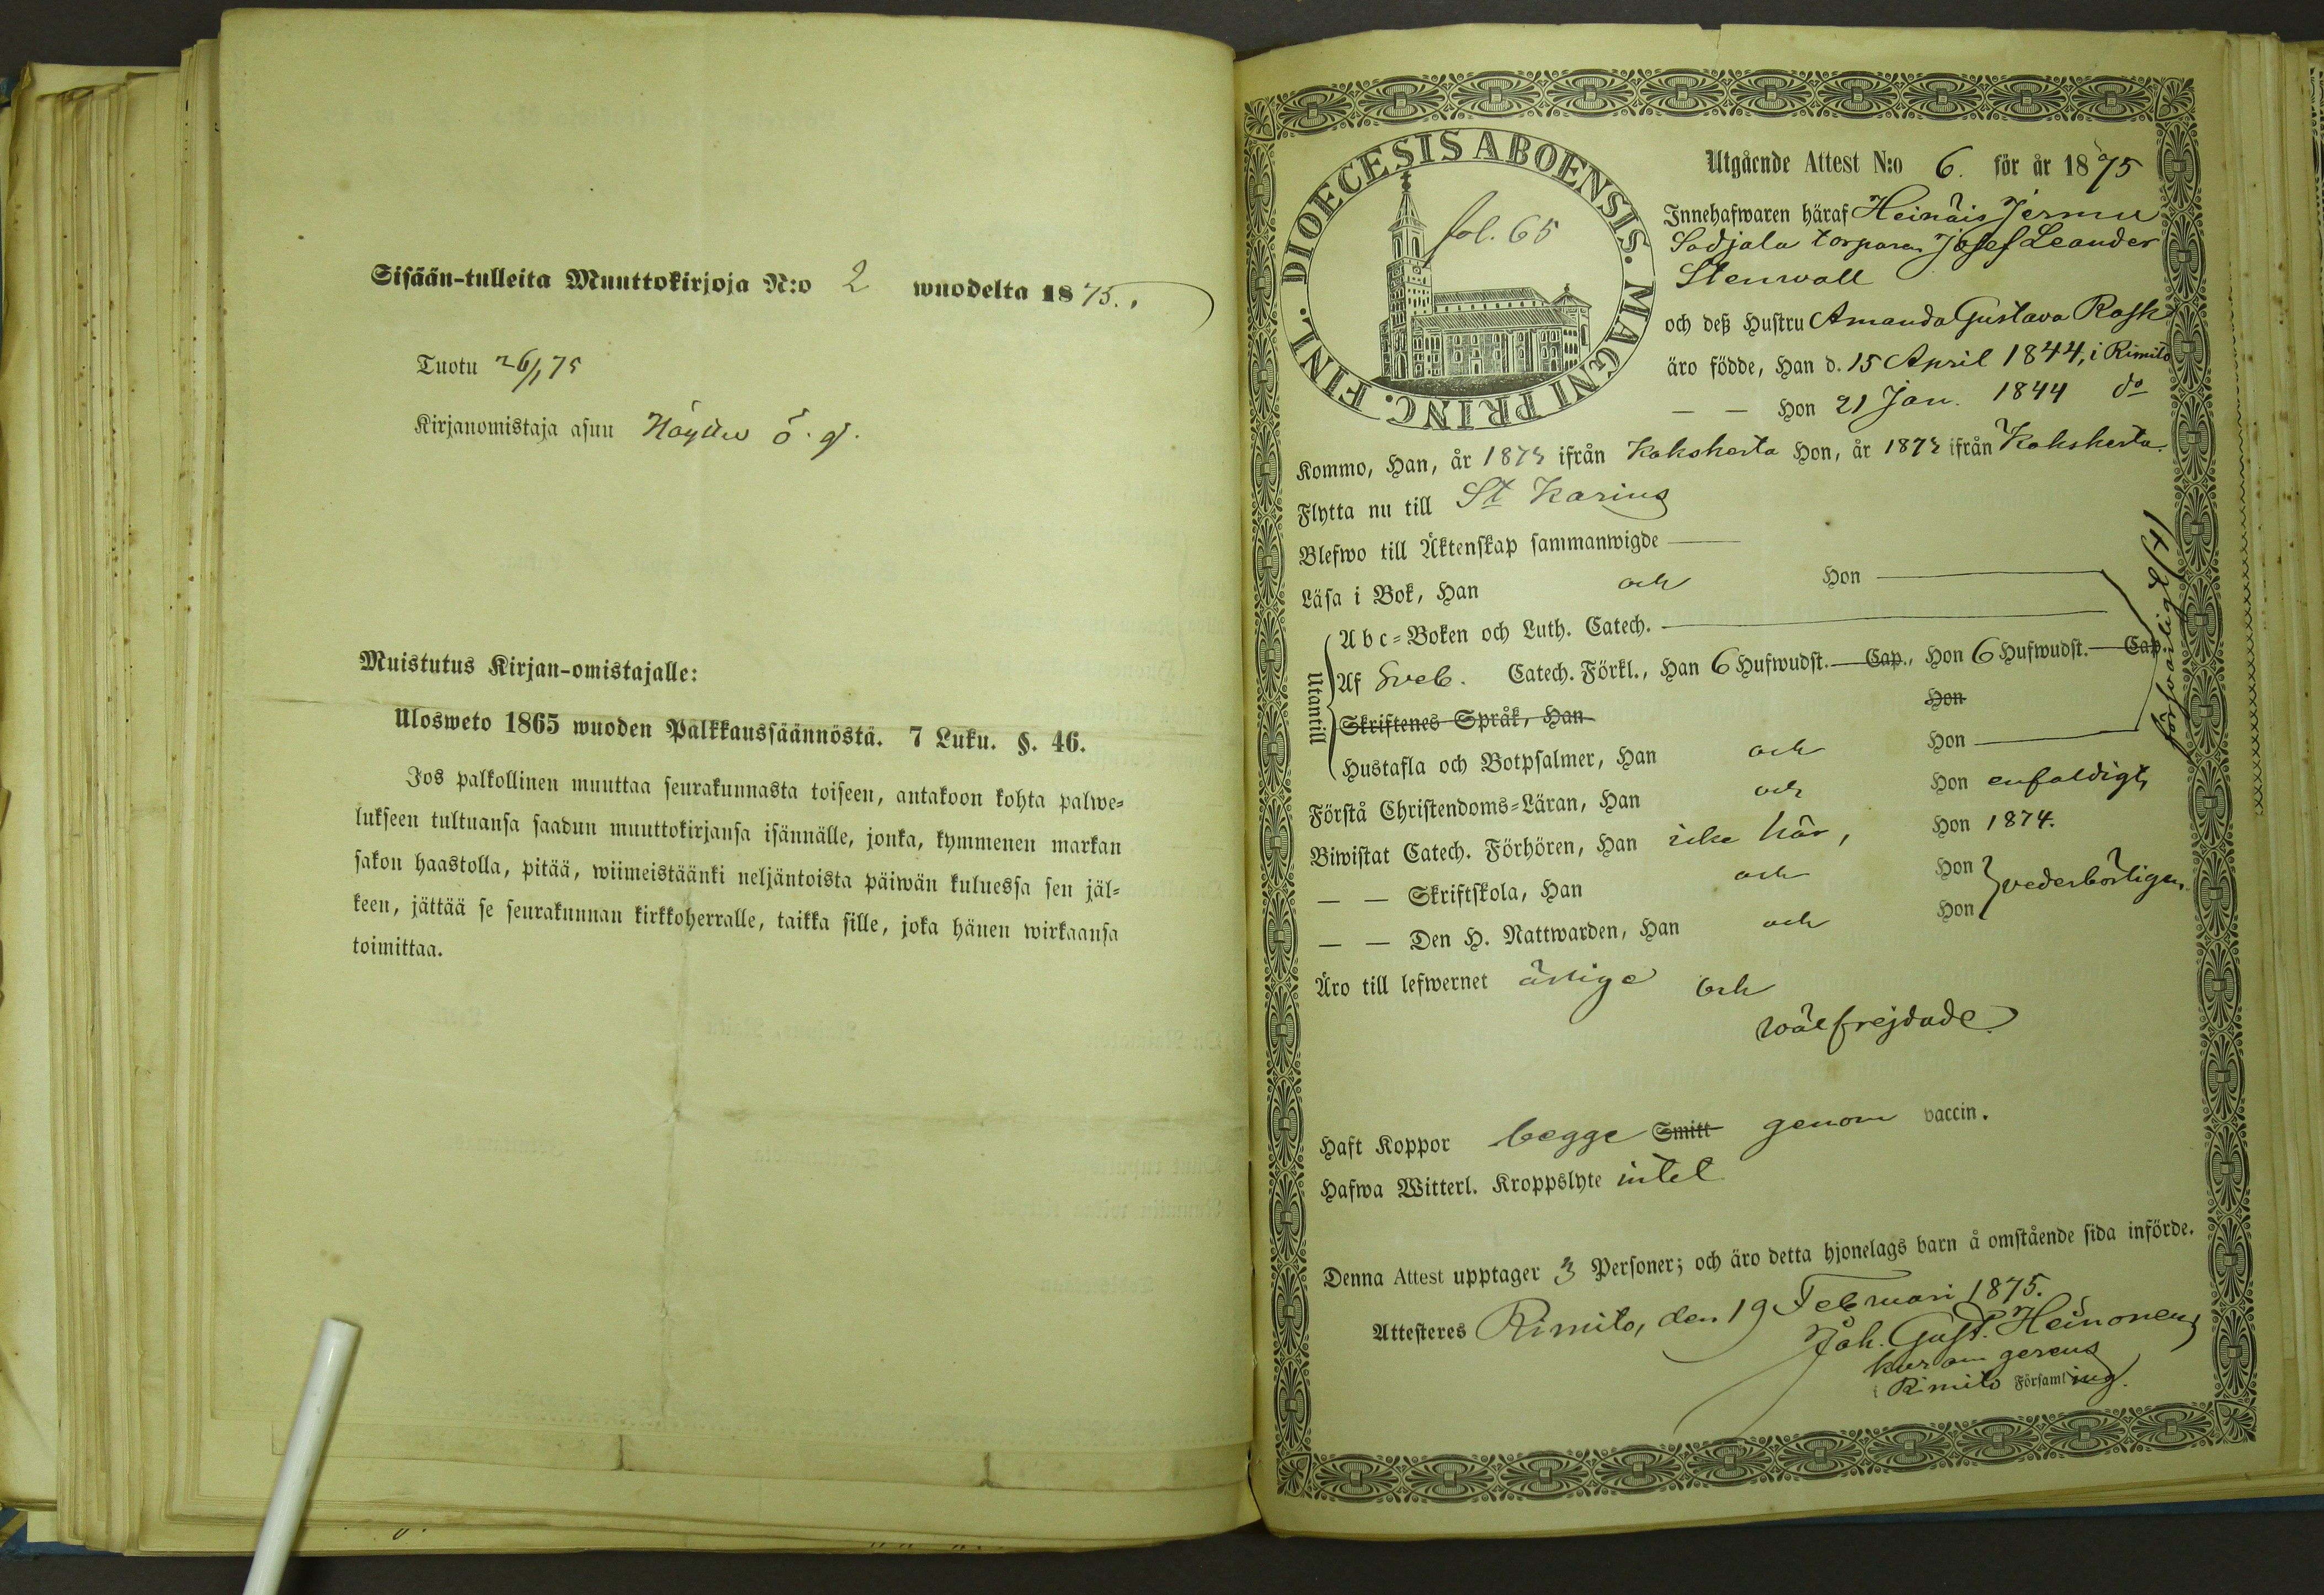 Sisään-tulleita Muuttokirjoja N:o 2 wuodelta 1875.
Tuotu 26/1 75
Kirjanomistaja asuu
Muistutus Kirjan-omistajalle:
Ulosweto 1865 wuoden Palkkaussäännöstä. 7 Luku. §. 46.
Jos palkollinen muuttaa seurakunnasta toiseen, antakoon kohta palwe-
lukseen tultuansa saadun muuttokirjansa isännälle, jonka, kymmenen markan
sakon haastolla, pitää, wiimeistäänki neljäntoista päiwän kuluessa sen jäl-
keen, jättää se seurakunnan kirkkoherralle, taikka sille, joka hänen wirkaansa
toimittaa.
DIOECESIS ABOENSIS. MAGNI PRINC. FINL.
fol. 65
Utgående Attest N:o 6. för år 1875
Innehafwaren häraf Heinäis Jermu
Sadjala torparen Josef Leander
Stenwall
och deß Hustru Amanda Gustava Rask
äro födde, Han d. 15 April 1844, i Rimito
— — Hon 21 Jan. 1844 do
Kommo, Han, år 1873 ifrån Kakskerta Hon, år 1873 ifrån Kakskerta.
Flytta nu till St Karins
Blefwo till Äktenskap sammanwigde —
Läsa i Bok, Han och Hon —
Utantill
Abc-Boken och Luth. Catech. —
Af Sveb. Catech. Förkl., Han 6 Hufwudst. — Cap., Hon 6 Hufwudst. — Cap.
Skriftenes Språk, Han Hon
Hustafla och Botpsalmer, Han och Hon —
försvarligt
Förstå Christendoms-Läran, Han och Hon enfaldigt,
Biwistat Catech. Förhören, Han icke här, Hon 1874.
— — Skriftskola, Han och Hon
— — Den H. Nattwarden, Han och Hon vederbörligen.
Äro till lefwernet ärlige och
wälfrejdade.
Haft Koppor begge Smitt genom vaccin.
Hafwa Witterl. Kroppslyte intet
Denna Attest upptager 3 Personer; och äro detta hjonelags barn å omstående sida införde.
Attesteras Rimito, den 19 Februari 1875.
Joh. Gust. Heinonen
kuram gerens
i Rimito Församling.